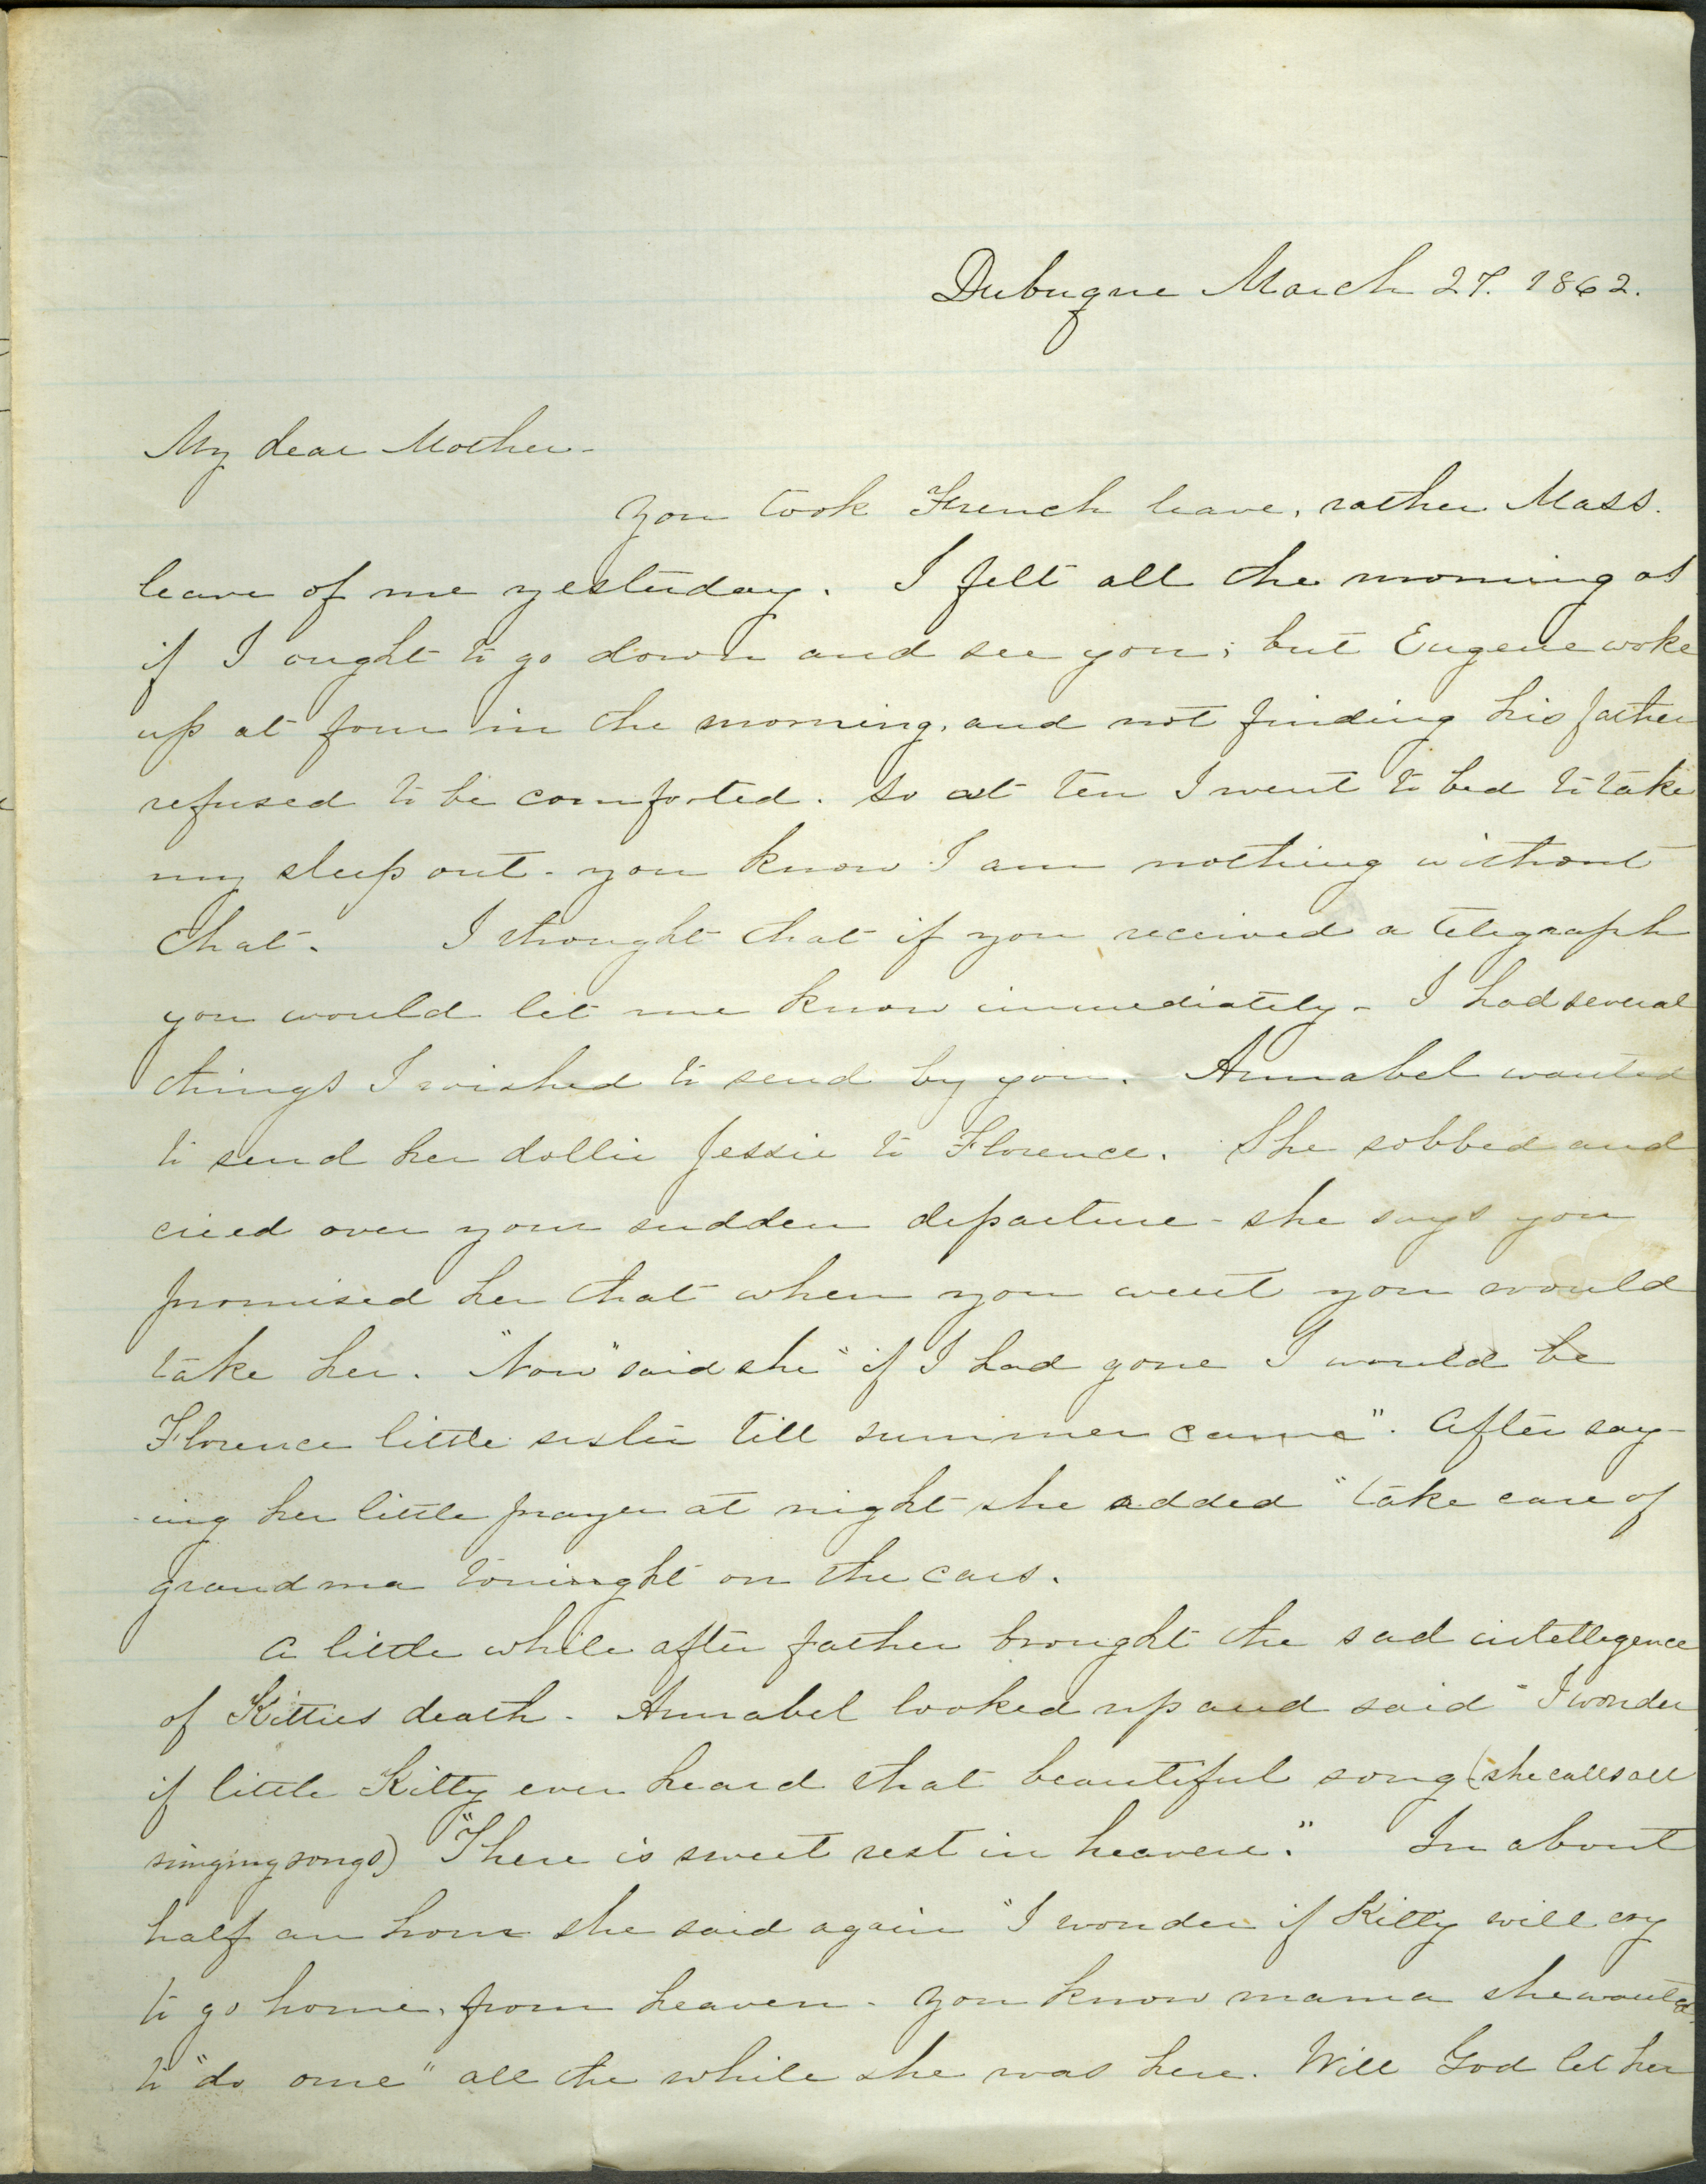 Dubuque March 27. 1862.
My dear Mother-
You took French leave, rather Mass.
leave of me yesterday. I felt all the morning as
if I ought to go down and see you; but Eugene woke
up at four in the morning, and not finding his father
refused to be comforted. So at ten I went to bed to take
my sleep out - you know I am nothing without
that. I thought that if you received a telegraph
you would let me know immediately - I had several
things I wished to send by you. Annabel wanted
to send her dollie Jessie to Florence. She sobbed and
cried over your sudden departure - she says you
promised her that when you went you would
take her. "Now" said she "if I had gone I would be
Florence little sister till summer came". After say-
-ing her little prayer at night she added "take care of
grandma toninght on the cars.
A little while after father brought the sad intellegence
of Kitties death. Annabel looked up and said "I wonder
if little Kitty ever heard that beautiful song (she calls all
singing songs) "There is sweet rest in heaven." In about
half an hour she said again "I wonder if Kitty will cry
to go home, from heaven - you know mama she wanted
to "do ome" all the while she was here. Will God let her